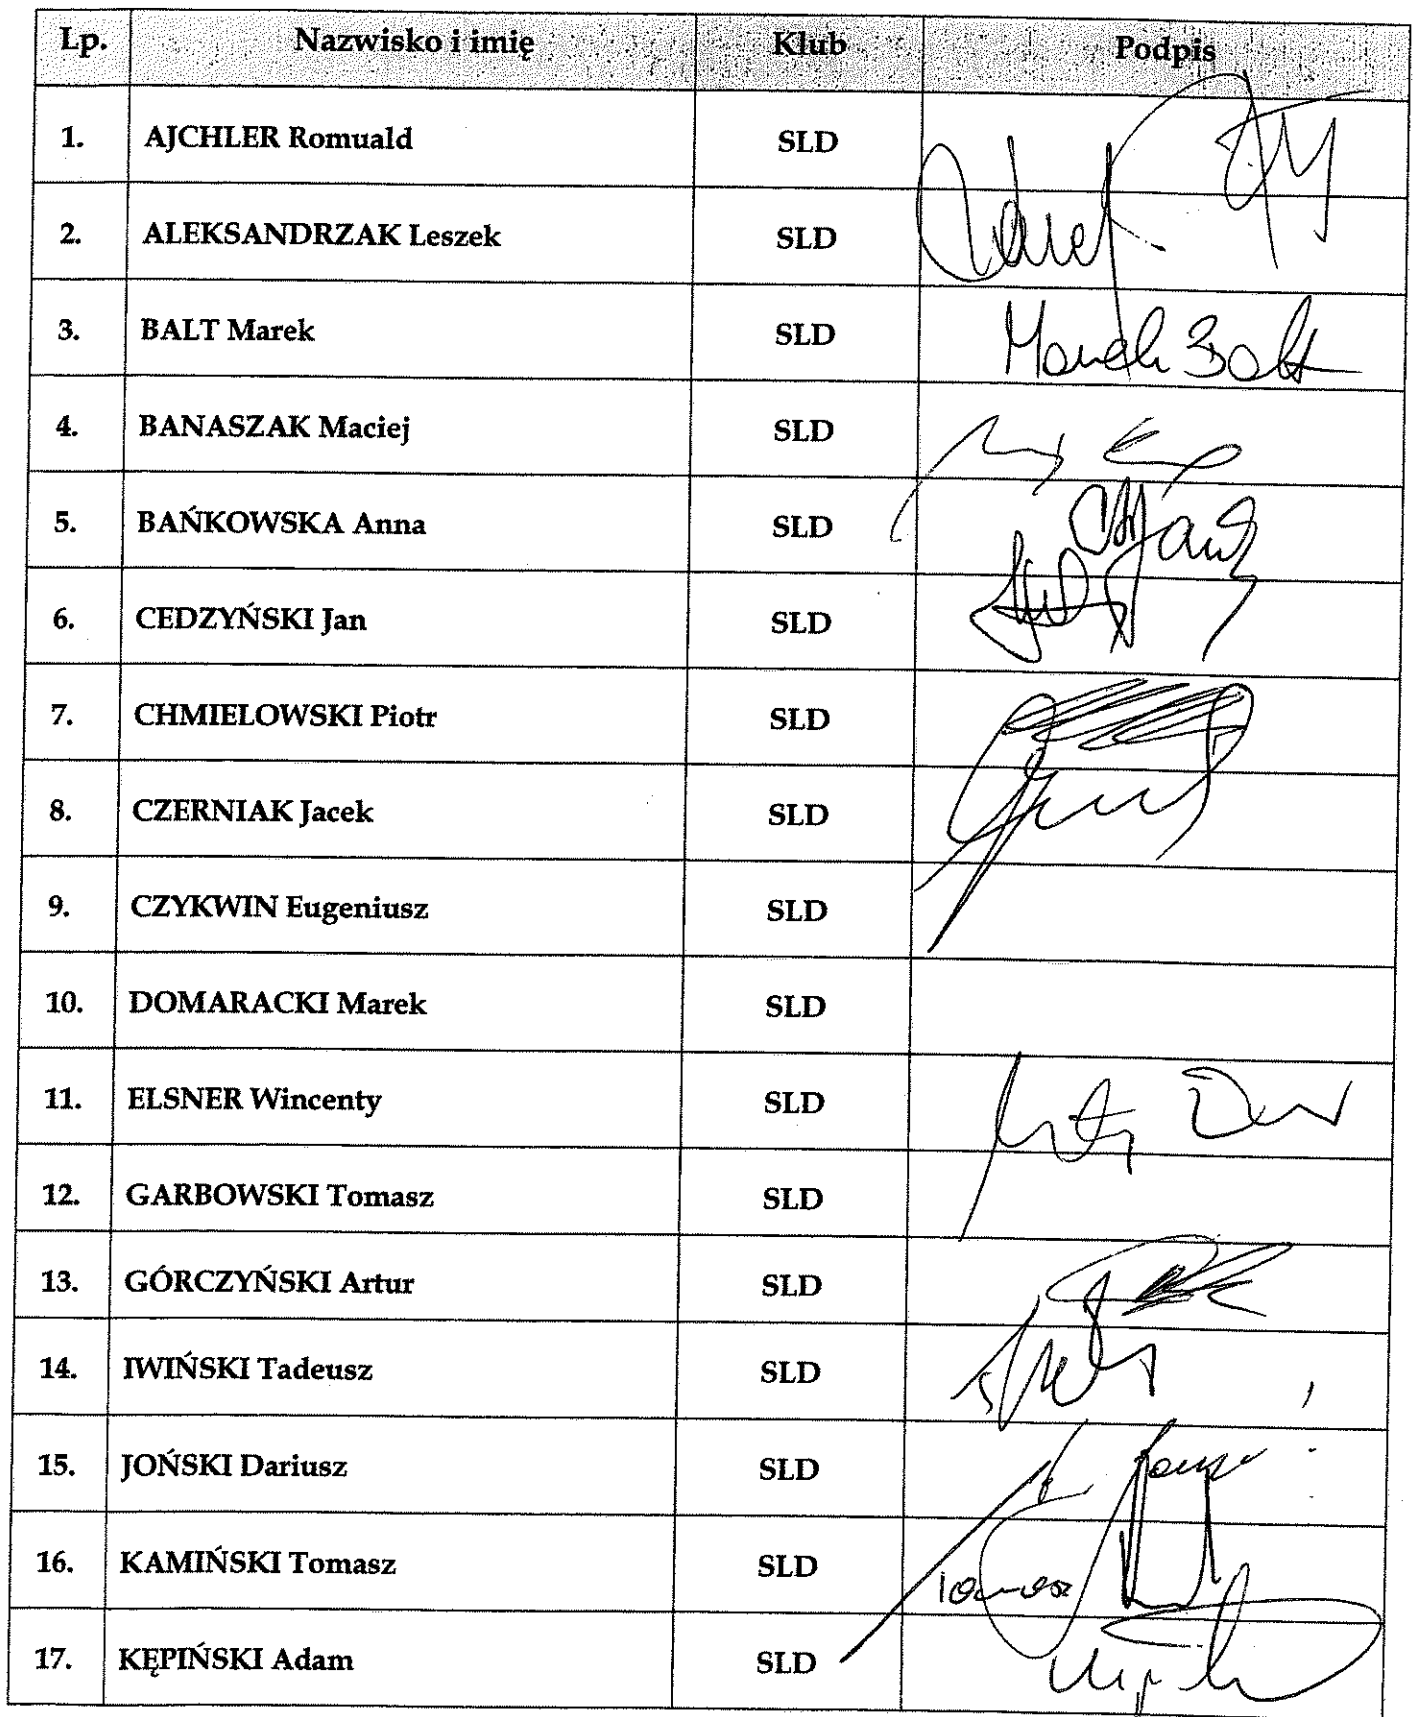 Lp. Nazwisko i imię Klub Podpis
1. AJCHLER Romuald SLD
2. ALEKSANDRZAK Leszek SLD
3. BALT Marek SLD Marek Balt
4. BANASZAK Maciej SLD
5. BAŃKOWSKA Anna SLD
6. CEDZYŃSKI Jan SLD
7. CHMIELOWSKI Piotr SLD
8. CZERNIAK Jacek SLD
9. CZYKWIN Eugeniusz SLD
10. DOMARACKI Marek SLD
11. ELSNER Wincenty SLD
12. GARBOWSKI Tomasz SLD
13. GÓRCZYŃSKI Artur SLD
14. IWIŃSKI Tadeusz SLD
15. JOŃSKI Dariusz SLD
16. KAMIŃSKI Tomasz SLD Tomasz
17. KĘPIŃSKI Adam SLD